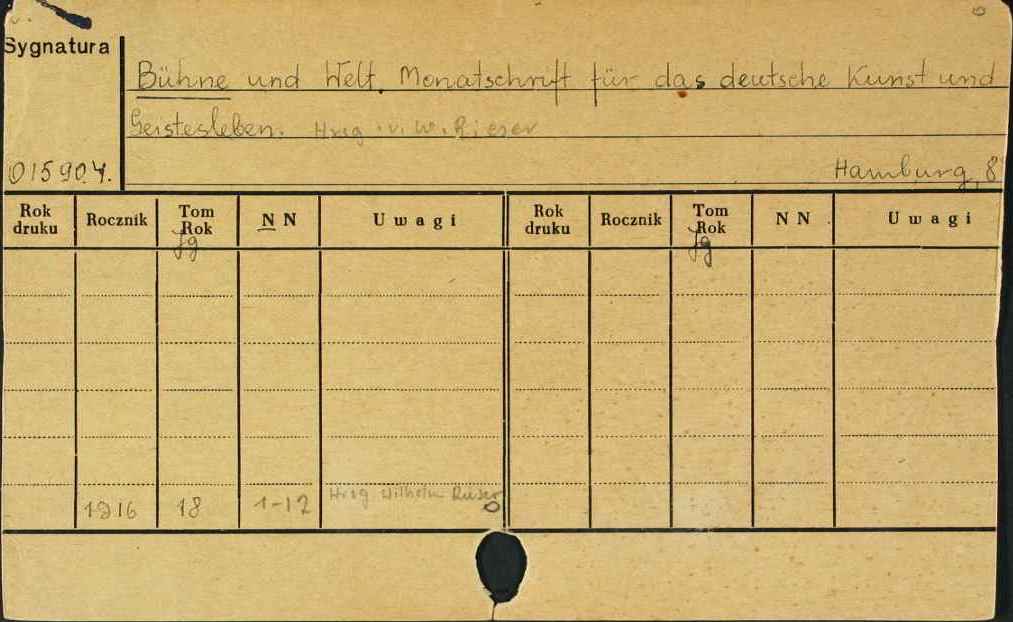 Sygnatura
Bühne und Welt. Monatschrift für das deutsche Kunst und
Geistesleben. Hrsg. v. W. Rieser
015904.
Hamburg, 8°
Rok druku Rocznik Tom Rok Jg N N Uwagi Rok druku Rocznik Tom Rok Jg N N Uwagi
1916 18 1-12 Hrsg Wilhelm Rieser